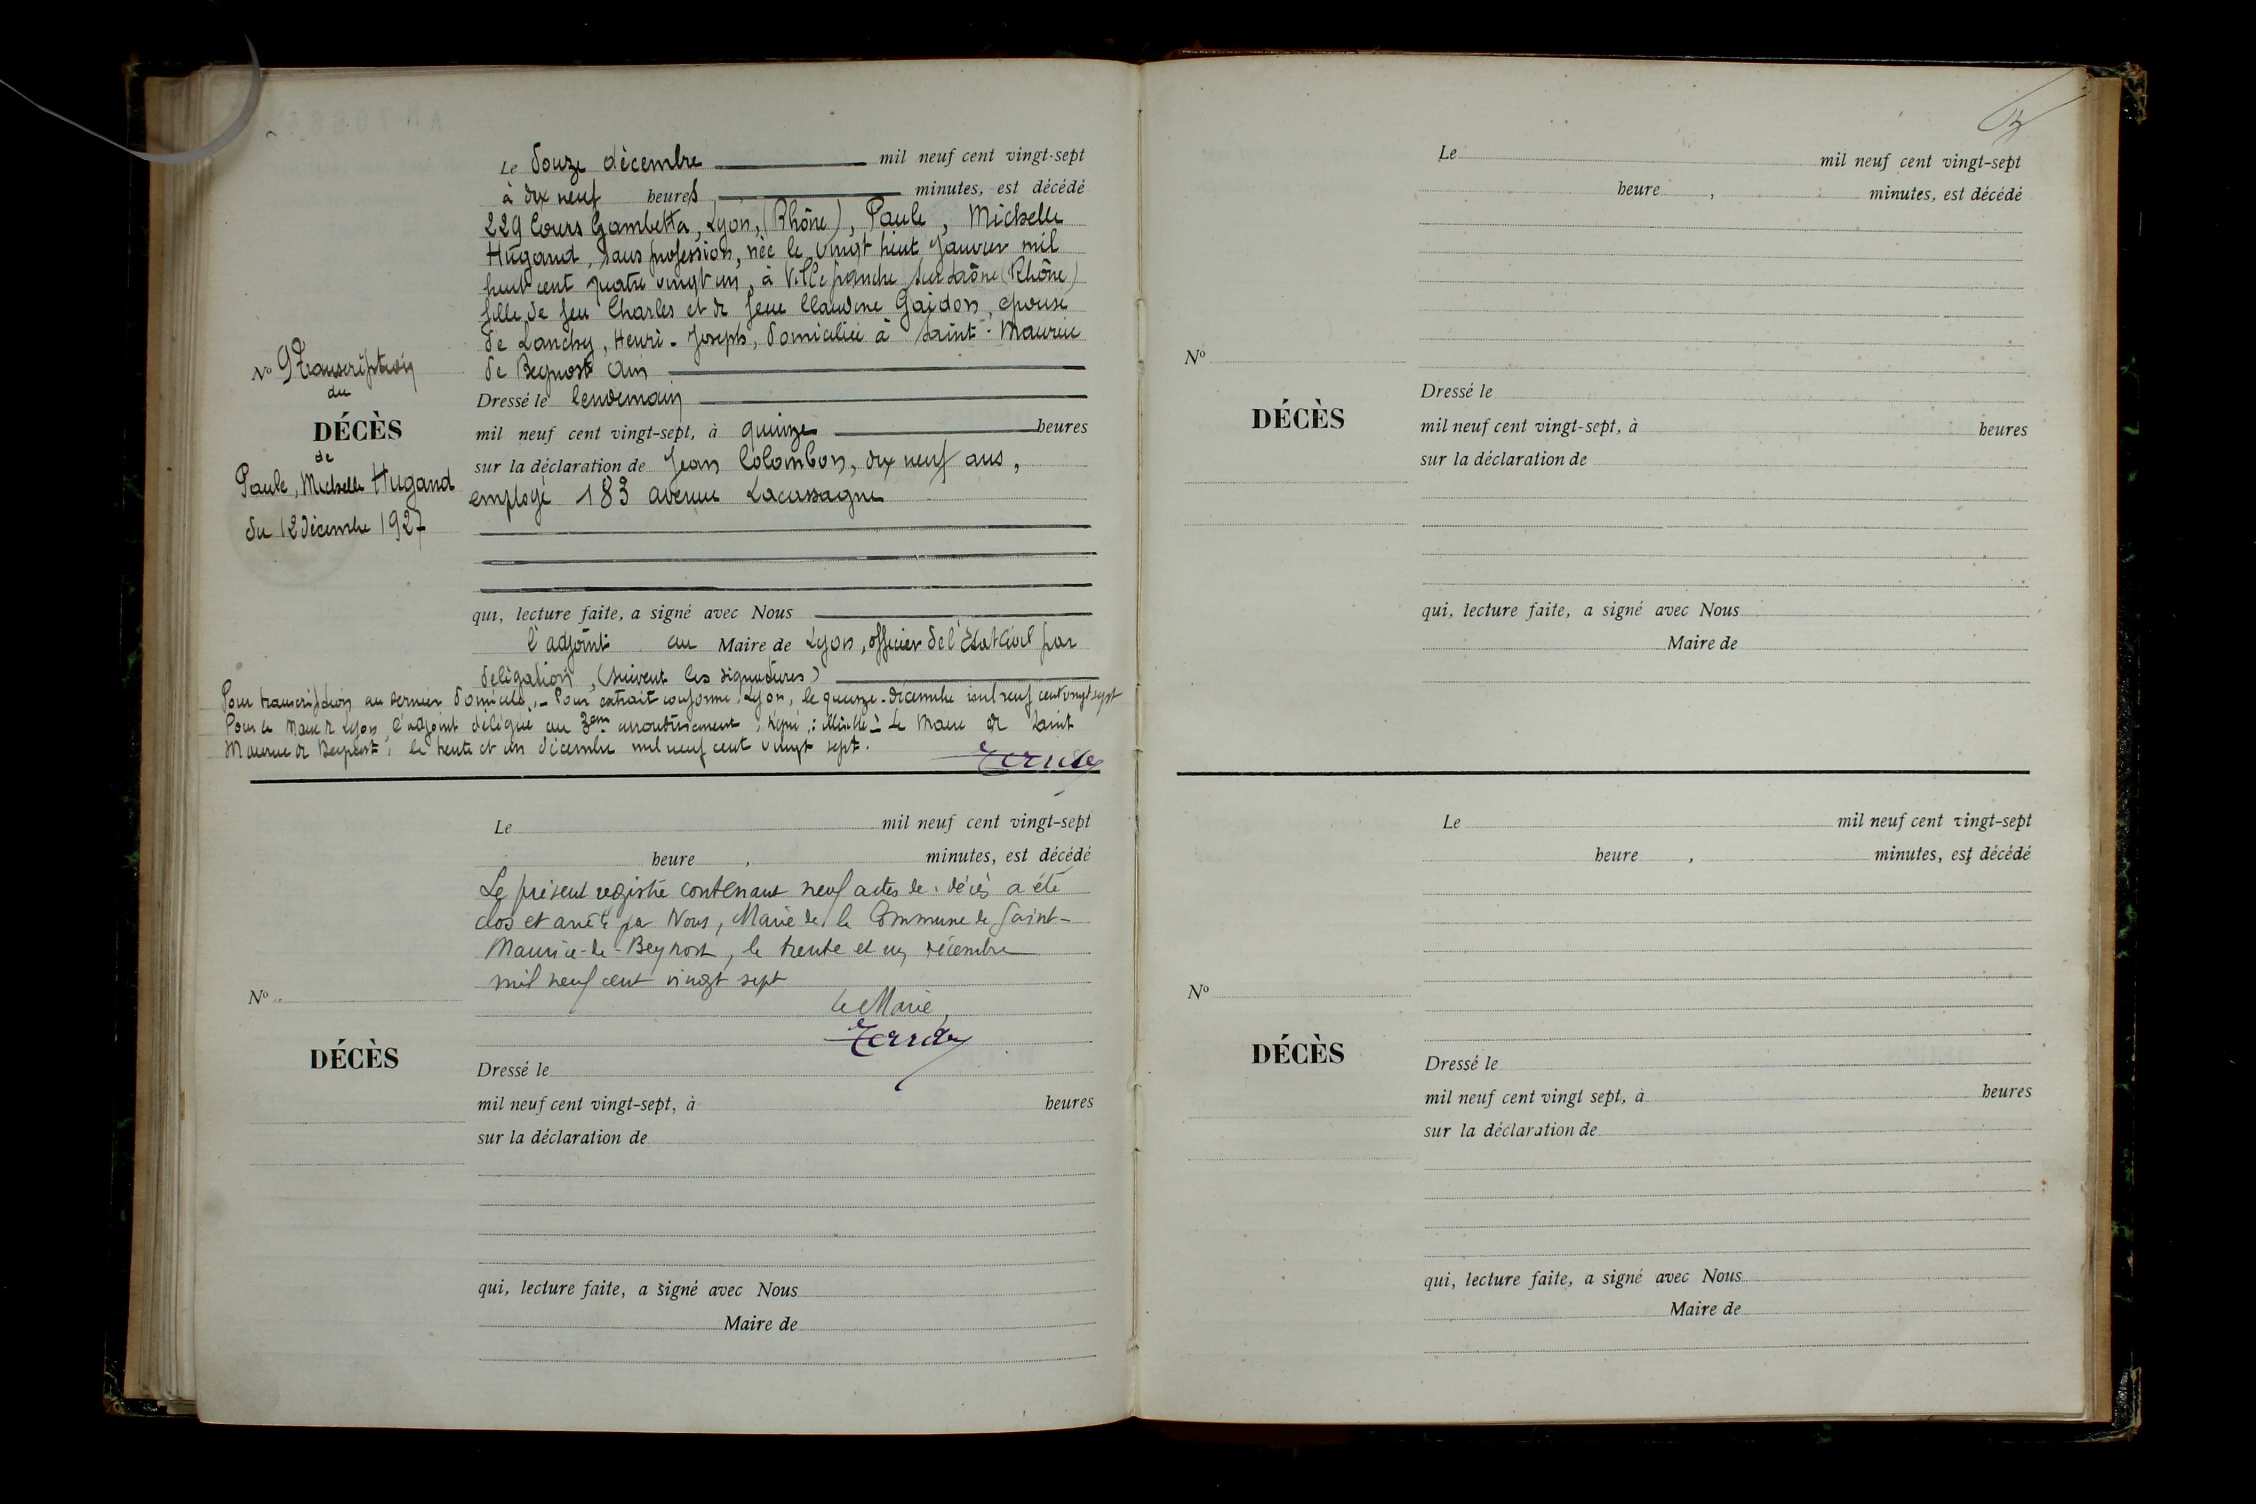 Le Douze décembre mil neuf cent vingt-sept
à dix neuf heures minutes, est décédé
229 Cours Gambetta, Lyon, (Rhône), Paule, Michelle
Hugand, sans profession, née le vingt huit Janvier mil
huit cent quatre vingt un, à Villefranche sur Saône (Rhône)
fille de feu Charles et de feue Claudine Gaidon, épouse
de Lanchy, Henri-Joseph, domiciliée à Saint-Maurice
de Beynost Ain
No 9 Transcription
du
DÉCÈS
de
Paule, Michelle Hugand
du 12 décembre 1927
Dressé le lendemain
mil neuf cent vingt-sept, à quinze heures
sur la déclaration de Jean Colombon, dix neuf ans,
employé 183 avenue Lacassagne
qui, lecture faite, a signé avec Nous
l'adjoint au Maire de Lyon, officier de l'Etat Civil par
délégation, (suivent les signatures)
Pour transcription au dernier domicile, - Pour extrait conforme, Lyon, le quinze décembre mil neuf cent vingt sept
Pour le Maire de Lyon, l'adjoint délégué au 3em arrondissement, signé : - Le Maire de Saint
Maurice de Beynost, le trente et un décembre mil neuf cent vingt sept.
Le mil neuf cent vingt-sept
heure , minutes, est décédé
Le présent registre contenant neuf actes de décès a été
clos et arrêté par Nous, Maire de la Commune de Saint-
Maurice-de-Beynost, le trente et un décembre
mil neuf cent vingt sept
Le Maire,
No
DÉCÈS
Dressé le
mil neuf cent vingt-sept, à heures
sur la déclaration de
qui, lecture faite, a signé avec Nous
Maire de
Le mil neuf cent vingt-sept
heure , minutes, est décédé
No
DÉCÈS
Dressé le
mil neuf cent vingt-sept, à heures
sur la déclaration de
qui, lecture faite, a signé avec Nous
Maire de
Le mil neuf cent vingt-sept
heure , minutes, est décédé
No
DÉCÈS
Dressé le
mil neuf cent vingt sept, à heures
sur la déclaration de
qui, lecture faite, a signé avec Nous
Maire de